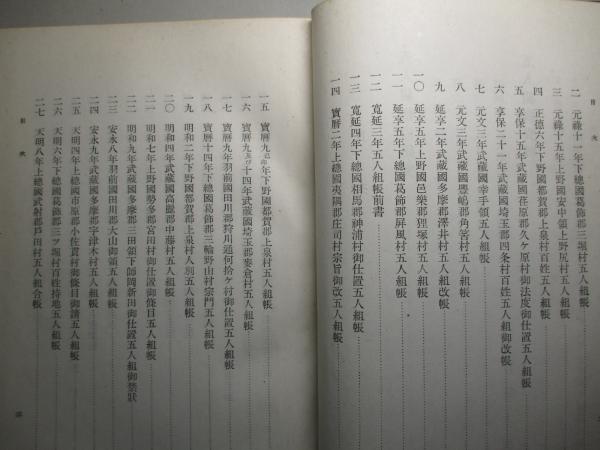 目次
二 元祿十一年下總國葛飾郡三堀村五人組帳
三 元祿十五年上野國安中領上野尻村五人組帳
四 正德六年下野國都賀郡上泉村百姓五人組帳
五 享保十五年武藏國荏原郡久ヶ原村御法度御仕置五人組帳
六 享保二十一年武藏國埼玉郡四条村百姓五人組御改帳
七 元文三年武藏國幸手領五人組帳
八 元文三年武藏國豐嶋郡角筈村五人組帳
九 延享二年武藏國多摩郡澤井村五人組改帳
一〇 延享五年上野國邑樂郡狸塚村五人組帳
一一 延享五年下總國葛飾郡屏風村五人組帳
一二 寬延三年五人組帳前書
一三 寬延四年下總國相馬郡神浦村御仕置五人組帳
一四 寶曆二年上總國夷隅郡庄司村宗旨御改五人組帳
一五 寶曆九己卯年下野國都賀郡上泉村五人組帳
一六 寶曆九及び十四年武藏國埼玉郡麥倉村五人組帳
一七 寶曆九年羽前國田川郡狩川通何拾ケ村御仕置五人組帳
一八 寶曆十四年下總國葛飾郡三輪野山村宗門五人組帳
一九 明和二年下野國都賀郡上泉村人別五人組帳
二〇 明和四年武藏國高麗郡中藤村五人組帳
二一 明和七年上野國勢多郡宮田村御仕置御條目五人組帳
二二 明和九年武藏國多摩郡三田領下師岡新田御仕置五人組御禁狀
二三 安永八年羽前國田川郡大山御領五人組帳
二四 安永九年武藏國多摩郡宇津木村五人組帳
二五 天明四年上總國市原郡小佐貫村御條目御請五人組帳
二六 天明六年下總國葛飾郡三ツ堀村百姓持地五人組帳
二七 天明八年上總國武射郡戶田村五人組合帳
目次